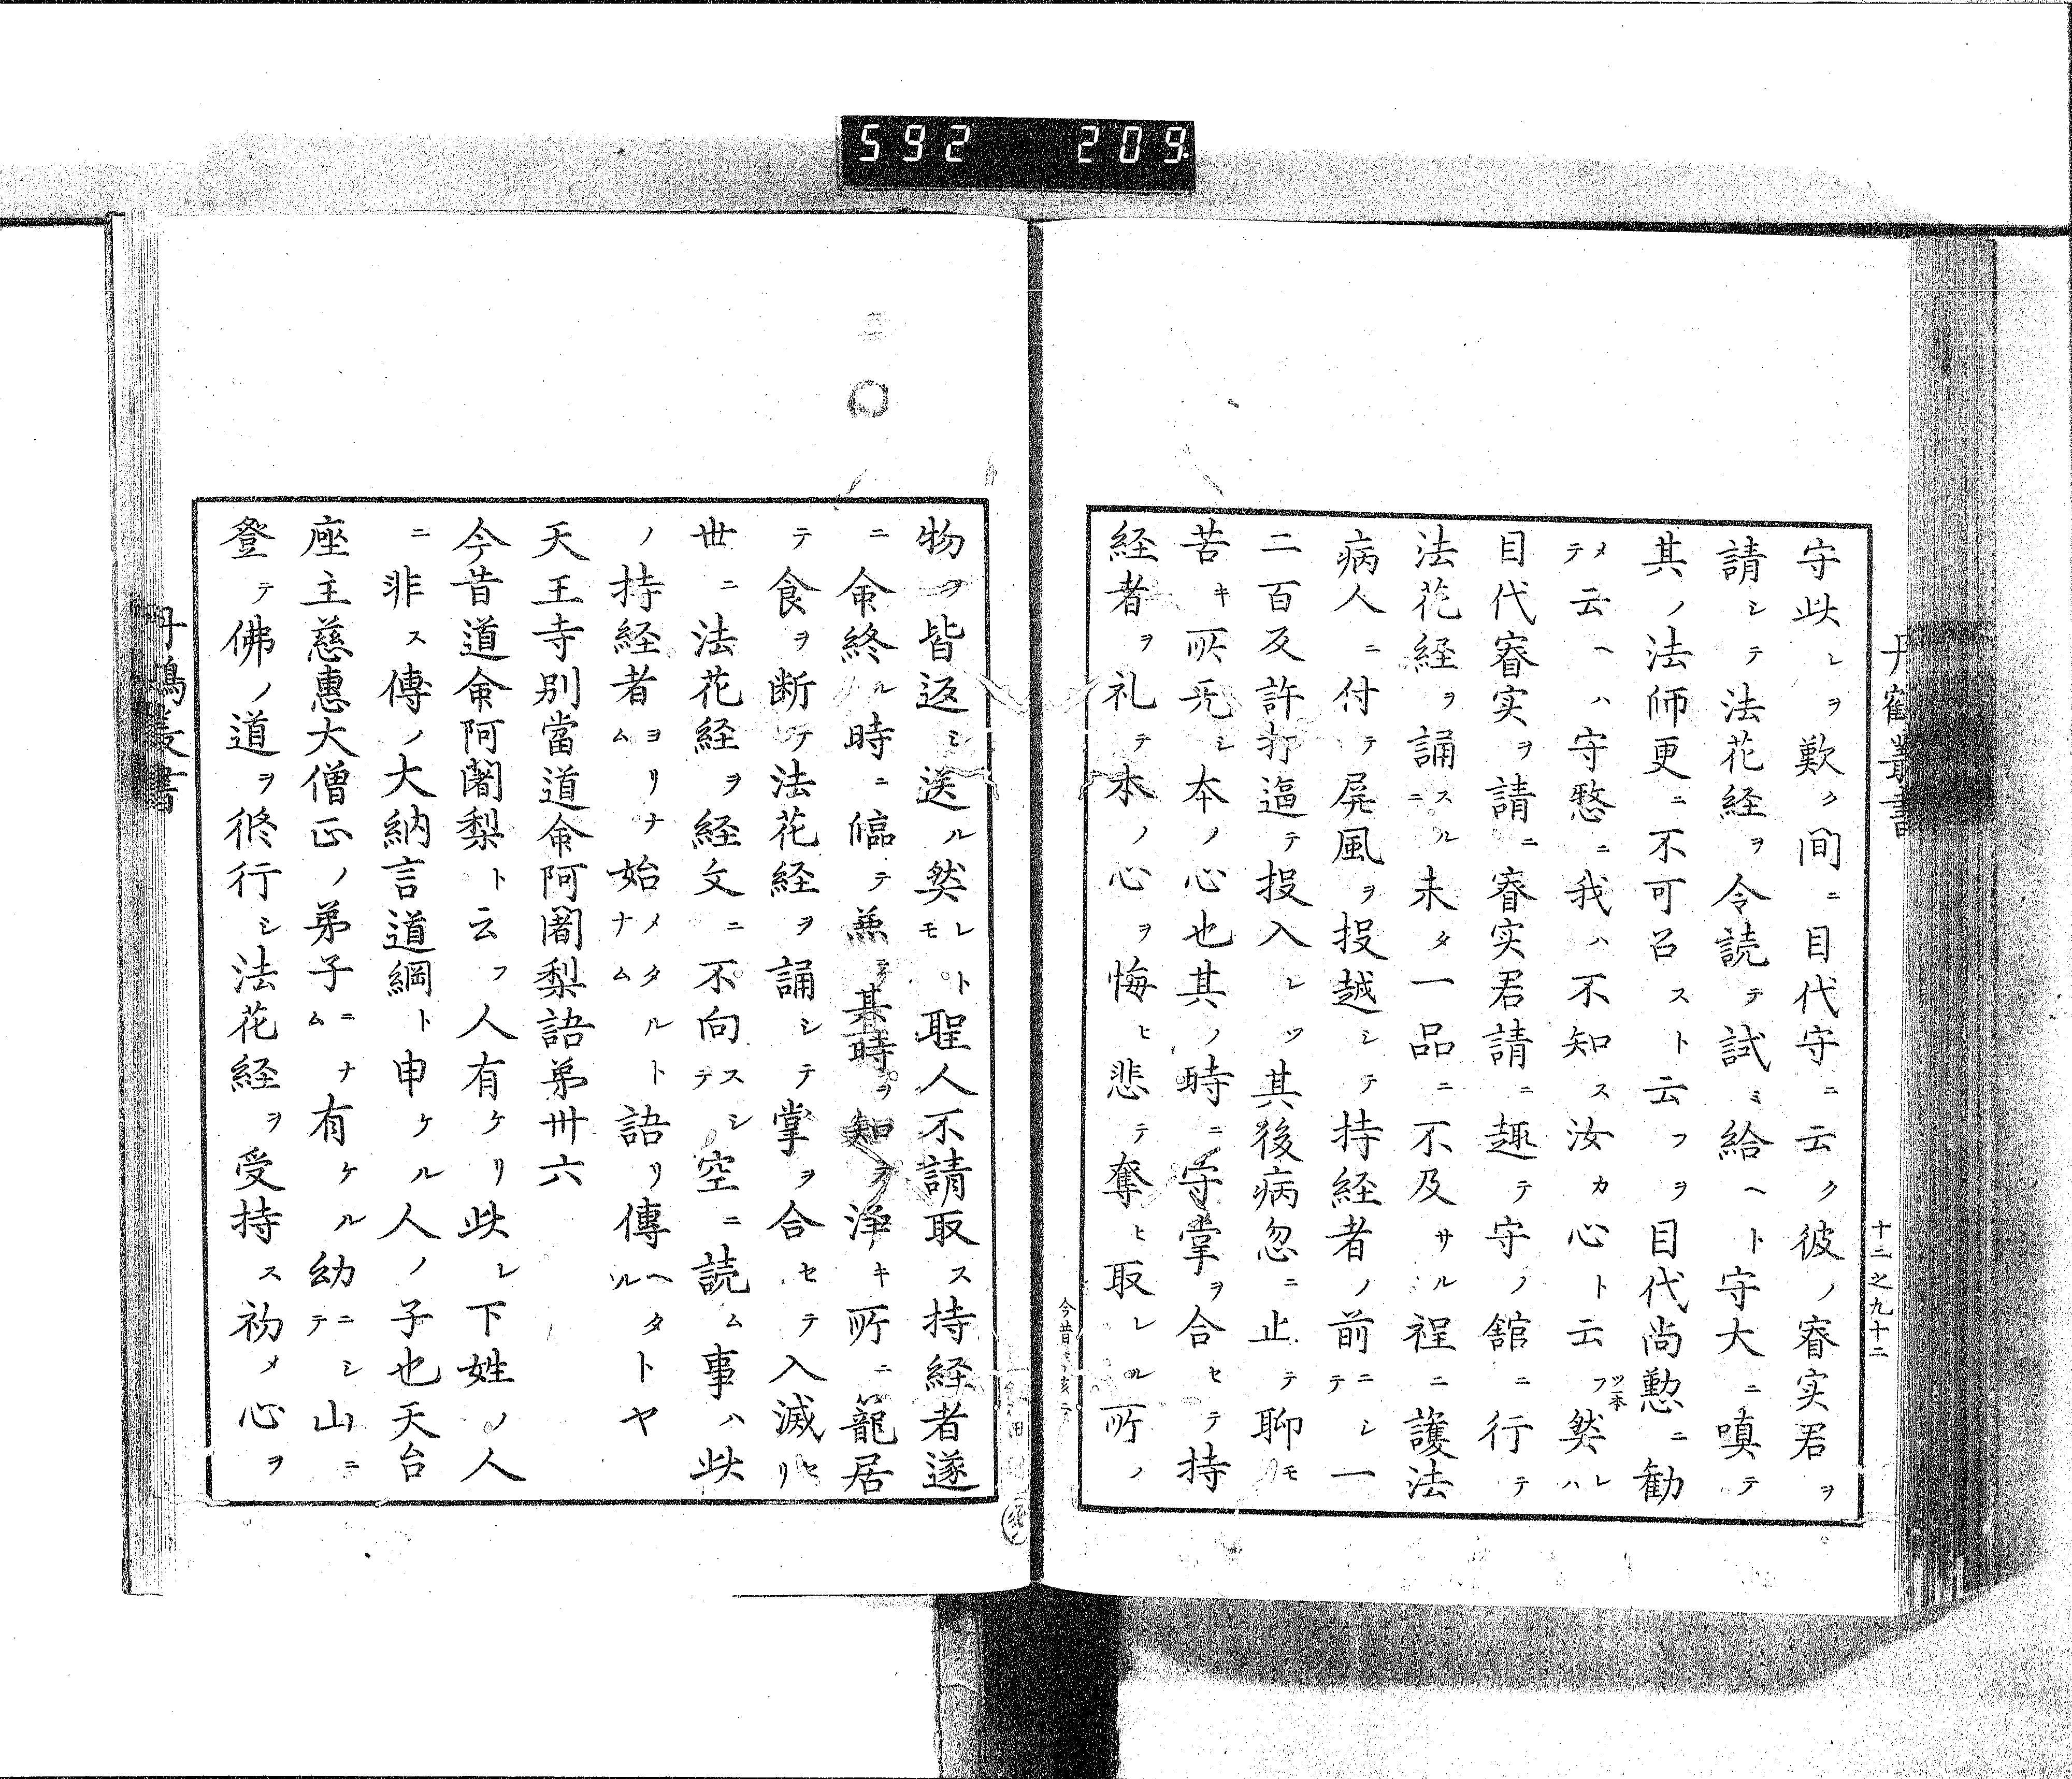 592 209
丹鶴叢書
十二之九十二
守此レヲ歎ク間ニ目代守ニ云ク彼ノ睿実君ヲ
請シテ法花経ヲ令読テ試ミ給ヘト守大ニ嗔テ
其ノ法師更ニ不可召スト云フヲ目代尚懃ニ勧
メテ云ヘハ守愁ニ我ハ不知ス汝カ心ト云フ然レハ
ツ一本
目代睿実ヲ請ニ睿実君請ニ趣テ守ノ舘ニ行テ
法花経ヲ誦スルニ未タ一品ニ不及サル程ニ護法
病人ニ付テ屏風ヲ投越シテ持経者ノ前ニシテ一
二百反許打逼テ投入レツ其後病忽ニ止テ聊モ
苦キ所无シ本ノ心也其ノ時ニ守掌ヲ合セテ持
経者ヲ礼テ本ノ心ヲ悔ヒ悲テ奪ヒ取レル所ノ
物ヲ皆返シ送ル然レトモ聖人不請取ス持経者遂
ニ命終ル時ニ臨テ兼テ其時ヲ知テ浄キ所ニ籠居
テ食ヲ断テ法花経ヲ誦シテ掌ヲ合セテ入滅セリ
世ニ法花経ヲ経文ニ不向スシテ空ニ読ム事ハ此
ノ持経者ヨリナム始メタルトナム語リ傳ヘタルトヤ
天王寺別當道命阿闍梨語弟卅六
今昔道命阿闍梨ト云フ人有ケリ此レ下姓ノ人
ニ非ス傳ノ大納言道綱ト申ケル人ノ子也天台
座主慈惠大僧正ノ弟子ニナム有ケル幼ニシテ山ニ
登テ佛ノ道ヲ修行シ法花経ヲ受持ス初メ心ヲ
丹鶴叢書